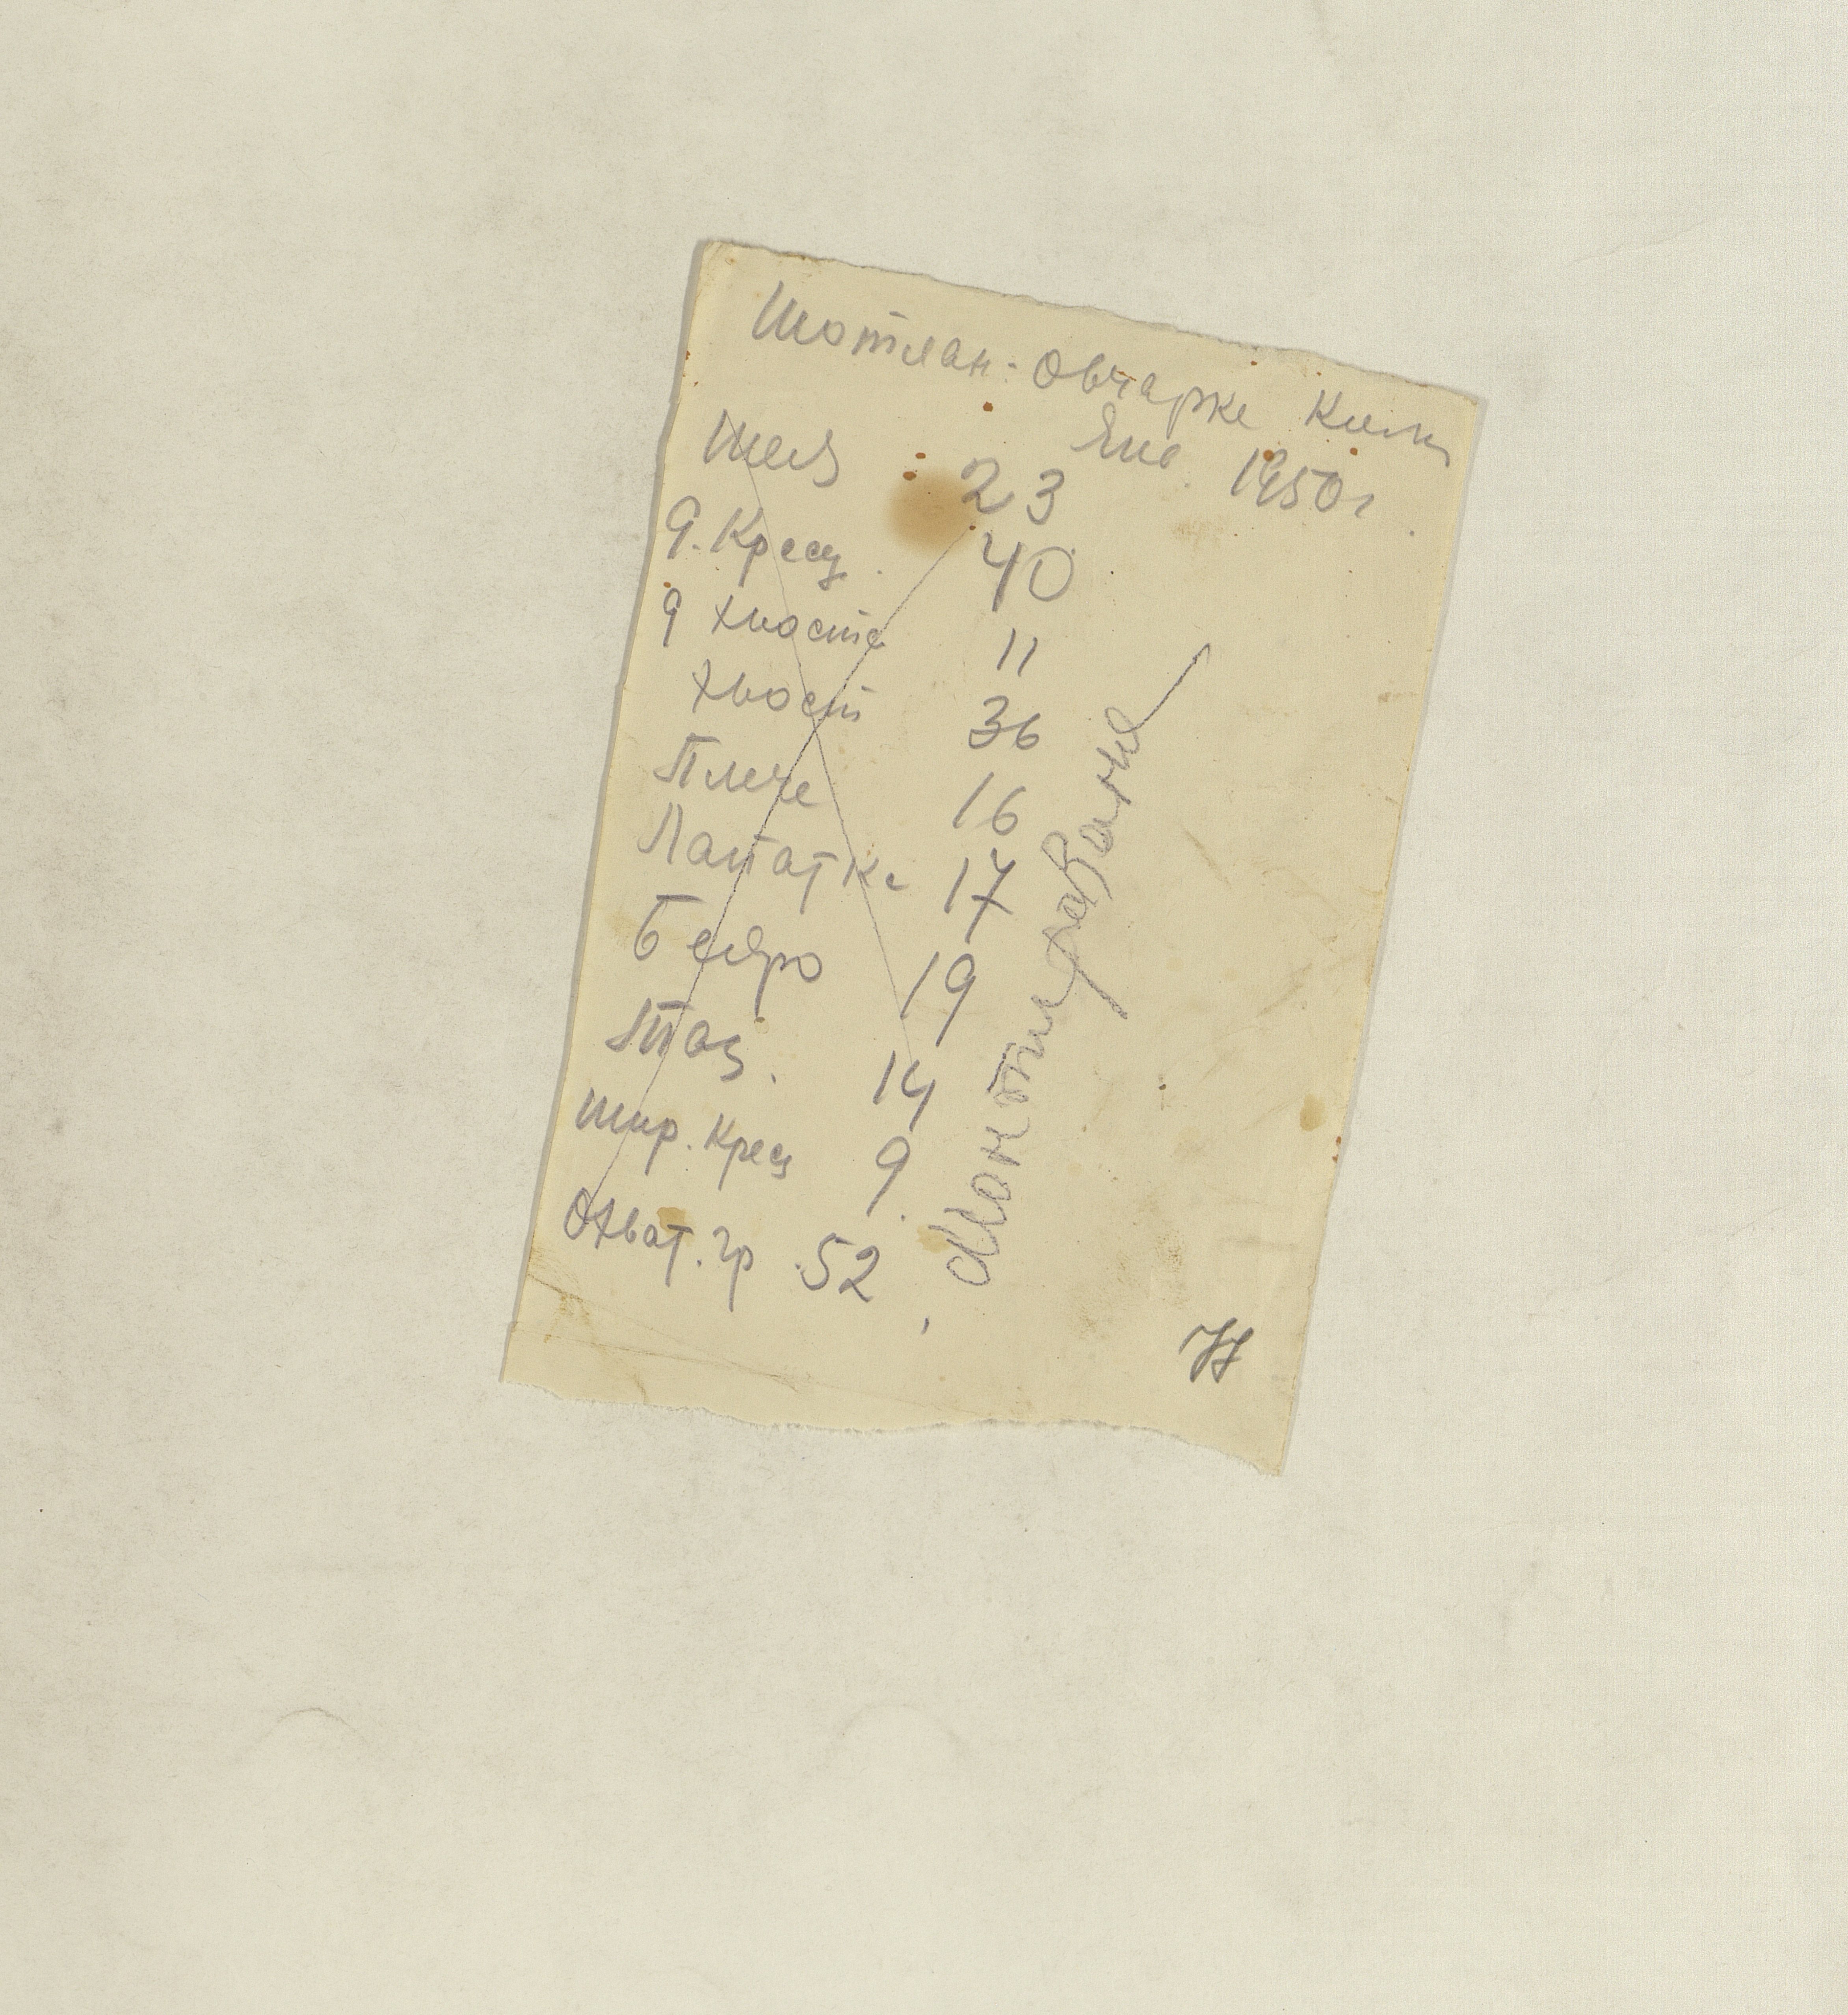 Шотлан-овчарке Колли
Янв. 1950г
Шея 23
д. Крест. 40
д хвоста 11
Хвост 36
Плече 16
Лапатка 17
Бедро 19
Таз. 14
Шир. Крест 9.
Охват. гр. 52
Монтирована